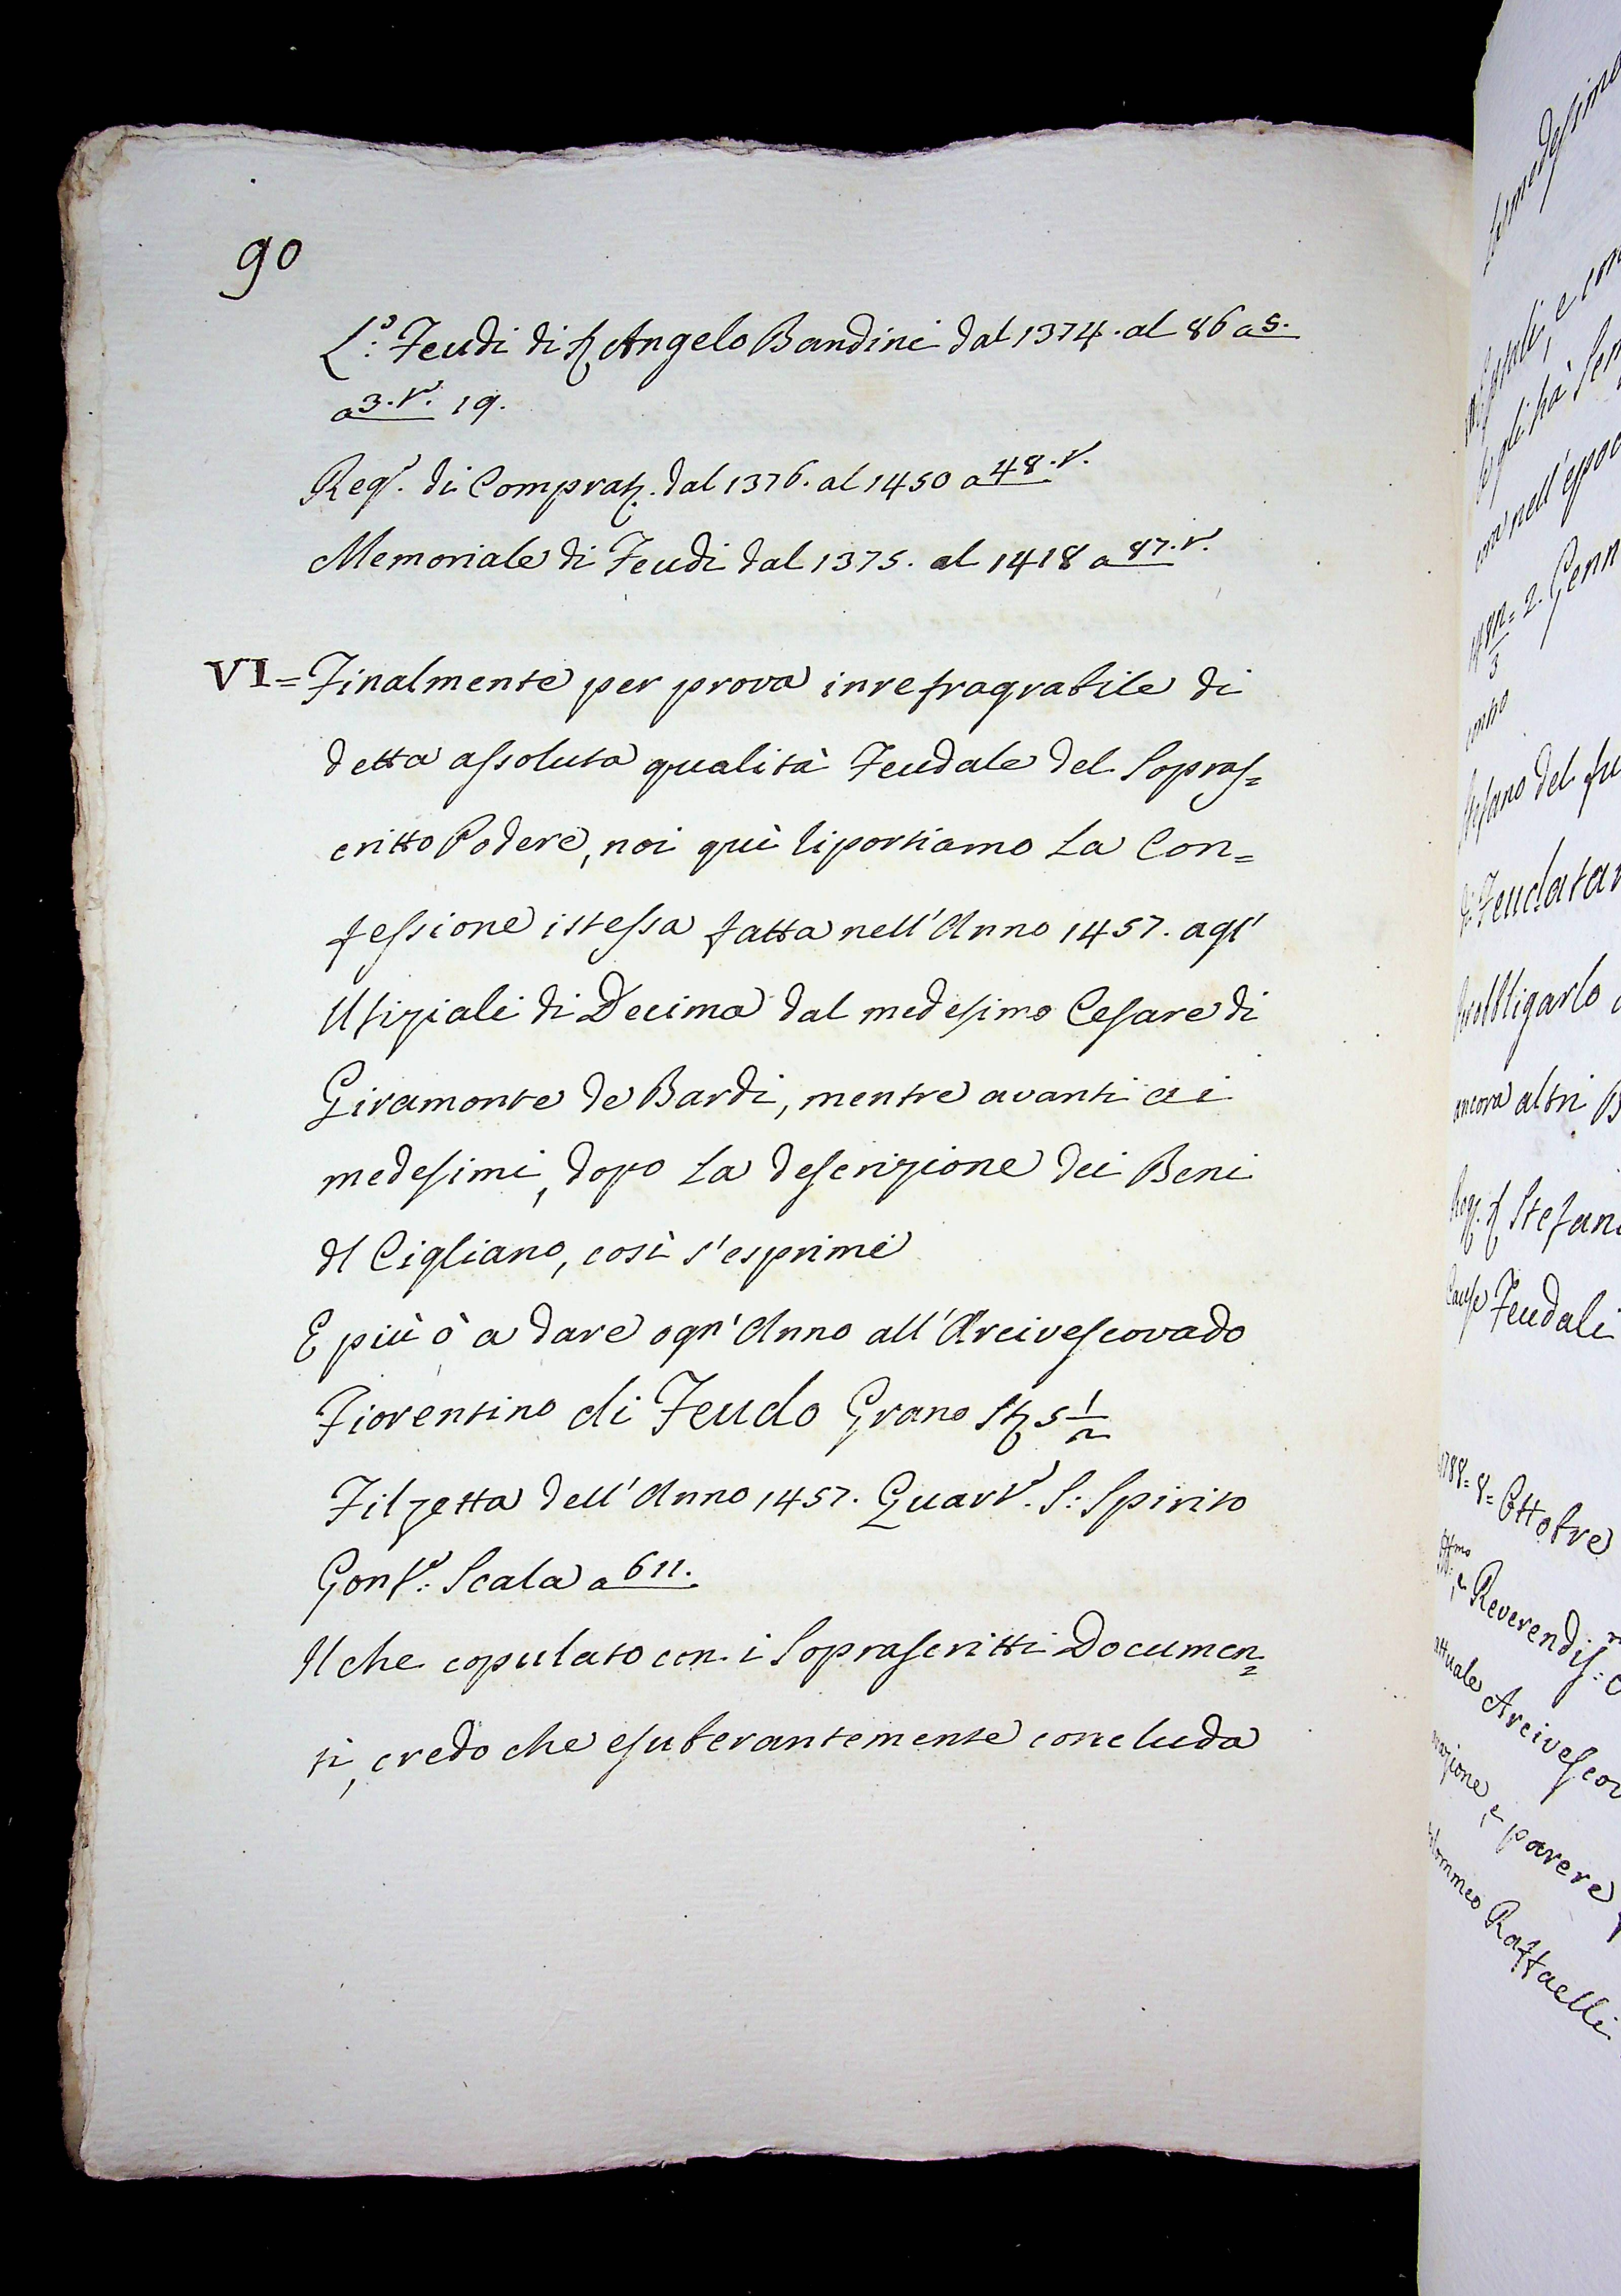 90
L.º Feudi di Ser Angelo Bandini dal 1374. al 86 a 5.
a 3. v.º 19.
Reg.º di Comprat. dal 1376. al 1450 a 48. v.
Memoriale di Feudi dal 1375. al 1418 a 87. v.
VI = Finalmente per prova inrefragrabile di
detta assoluta qualità Feudale del Sopras=
critto Podere, noi quì liportiamo La Con=
fessione istessa fatta nell'Anno 1457. agl'
Ufiziali di Decima dal medesimo Cesare di
Giramonte de Bardi, mentre avanti ai
medesimi, dopo La descrizione dei Beni
di Cigliano, così s'esprime
E più ò a dare ogn'Anno all'Arcivescovado
Fiorentino di Feudo Grano St. 5 1/2
Filzetta dell'Anno 1457. Quart.º S: Spirito
Gonf.e: Scala a 611.
Il che copulato con i Soprascritti Documen=
ti, credo che esuberantemente concluda
e con
nell'epoca
2. Genn
del
Feudatar
obbligarlo
ancora altri B
Stefano
Cause Feudali
1788 = 8 = Ottobre
e Reverendis:
attuale Arcivescov
e parere
Raffaelli